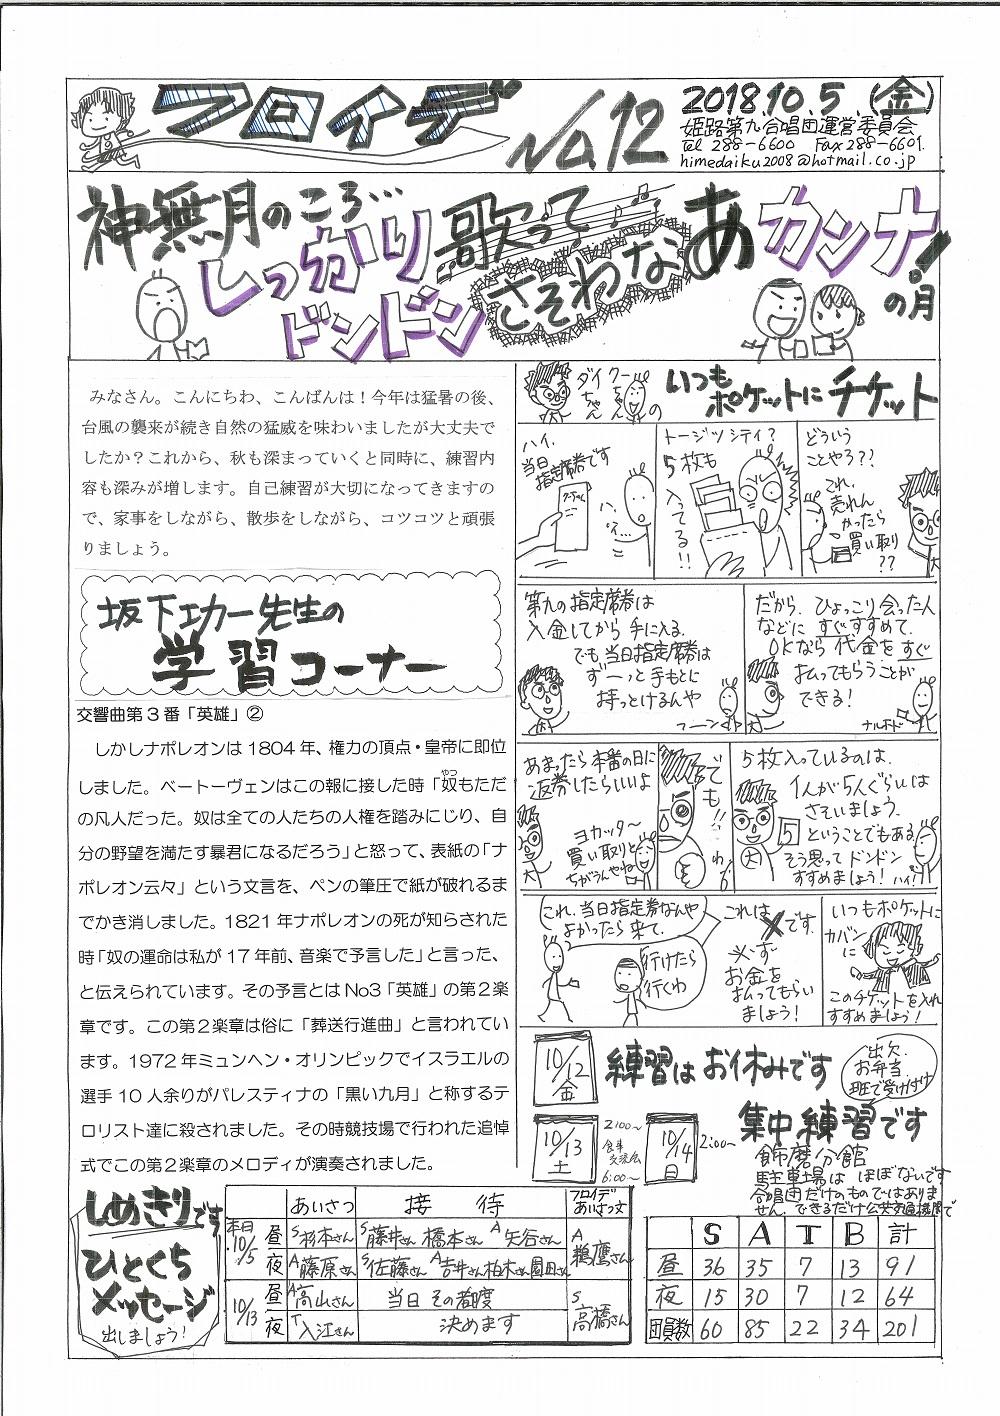 フロイデ
No.12
2018.10.5(金)
姫路第九合唱団運営委員会
Tel 288-6600 Fax 288-6601.
himedaiku2008@hotmail.co.jp
神無月のころ…
しっかり歌って
ドンドンさそわなあカンナ!
の月
みなさん。こんにちわ、こんばんは！今年は猛暑の後、
台風の襲来が続き自然の猛威を味わいましたが大丈夫で
したか？これから、秋も深まっていくと同時に、練習内
容も深みが増します。自己練習が大切になってきますの
で、家事をしながら、散歩をしながら、コツコツと頑張
りましょう。
坂下エカー先生の
学習コーナー
交響曲第３番「英雄」②
しかしナポレオンは 1804 年、権力の頂点・皇帝に即位
しました。ベートーヴェンはこの報に接した時「奴もただ
やつ
の凡人だった。奴は全ての人たちの人権を踏みにじり、自
分の野望を満たす暴君になるだろう」と怒って、表紙の「ナ
ポレオン云々」という文言を、ペンの筆圧で紙が破れるま
でかき消しました。1821 年ナポレオンの死が知らされた
時「奴の運命は私が 17 年前、音楽で予言した」と言った、
と伝えられています。その予言とは No3「英雄」の第２楽
章です。この第２楽章は俗に「葬送行進曲」と言われてい
ます。1972 年ミュンヘン・オリンピックでイスラエルの
選手 10 人余りがパレスティナの「黒い九月」と称するテ
ロリスト達に殺されました。その時競技場で行われた追悼
式でこの第２楽章のメロディが演奏されました。
ダイちゃん
クーちゃんの
いつも
ポケットにチケット
ハイ、
当日
指定席券です
ハ、ハイ…
トージツシテイ?
5枚も
入ってる!!
どういう
ことやろ??
これ、
売れん
かったら
買い取り
??
第九の指定席券は
入金してから手に入る.
でも、当日指定席券は
ずーっと手もとに
持っとけるんや
フーン
だから、ひょっこり会った人
などにすぐすすめて、
OKなら代金をすぐ
払ってもらうことが
できる!
ナルホド
あまったら本番の日に
返券したらいいよ
ヨカッタ〜
買い取りと
ちがうんやね
でも!!
5枚入っているのは、
1人が5人ぐらいは
さそいましょう.
ということでもある
そう思ってドンドン
すすめましょう!
ハイ!
5
大
これ、当日指定券なんや
よかったら来て.
行けたら
行くわ
これは
✕です.
必ず
お金を
払ってもらい
ましょう!
いつもポケットに
カバンに
このチケットを入れ
すすめましょう!
10/12
金
練習はお休みです
出欠.
お弁当.
班で受け付け
10/13
土
2:00〜
食事
交流会
6:00〜
10/14
日
2:00〜
集中練習です
飾磨分館
駐車場はほぼないです
合唱団だけのものではありま
せん.できるだけ公共交通機関で
しめきりです
ひとくち
メッセージ
出しましょう!
あいさつ 接待 フロイデあいさつ文
本日 10/5 昼 S杉本さん S藤井さん 橋本さん A矢谷さん A鵜鷹さん
夜 A藤原さん S佐藤さん A吉井さん柏木さん園田さん
10/13 昼 A高山さん 当日 その都度 S高橋さん
夜 T入江さん 決めます
S A T B 計
昼 36 35 7 13 91
夜 15 30 7 12 64
団員数 60 85 22 34 201